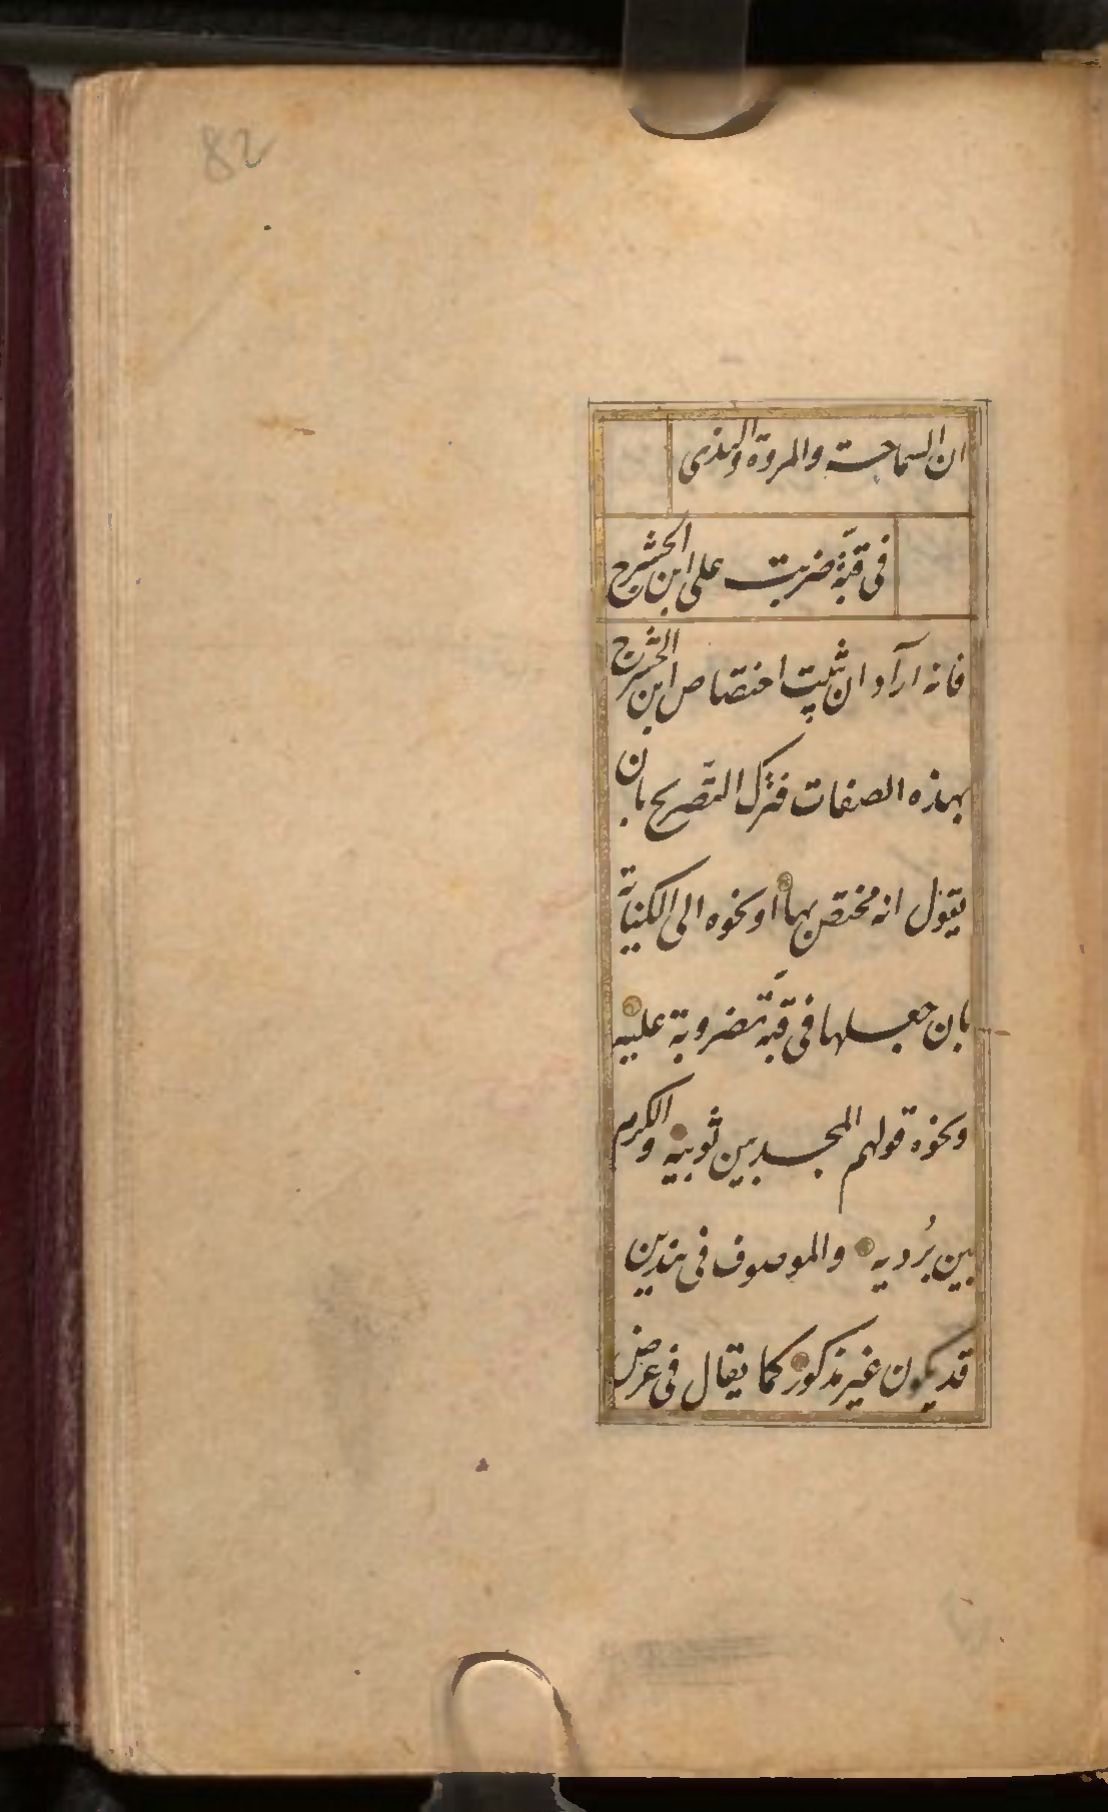 82
ان السماحة والمروة والندى
فى قبّة ضربت على ابن الحشرج
فانه اراد ان يثبت اختصاص ابن الحشرج
بهذه الصفات فترك التّصريح بان
يقول انه مختص بها او نحوه الى الكناية
بان جعلها فى قبّة مضروبة عليه
ونحوه قولهم المجد بين ثوبيه والكرم
بين بُرديه والموصوف فى هذين
قد يكون غير مذكور كما يقال فى عرض